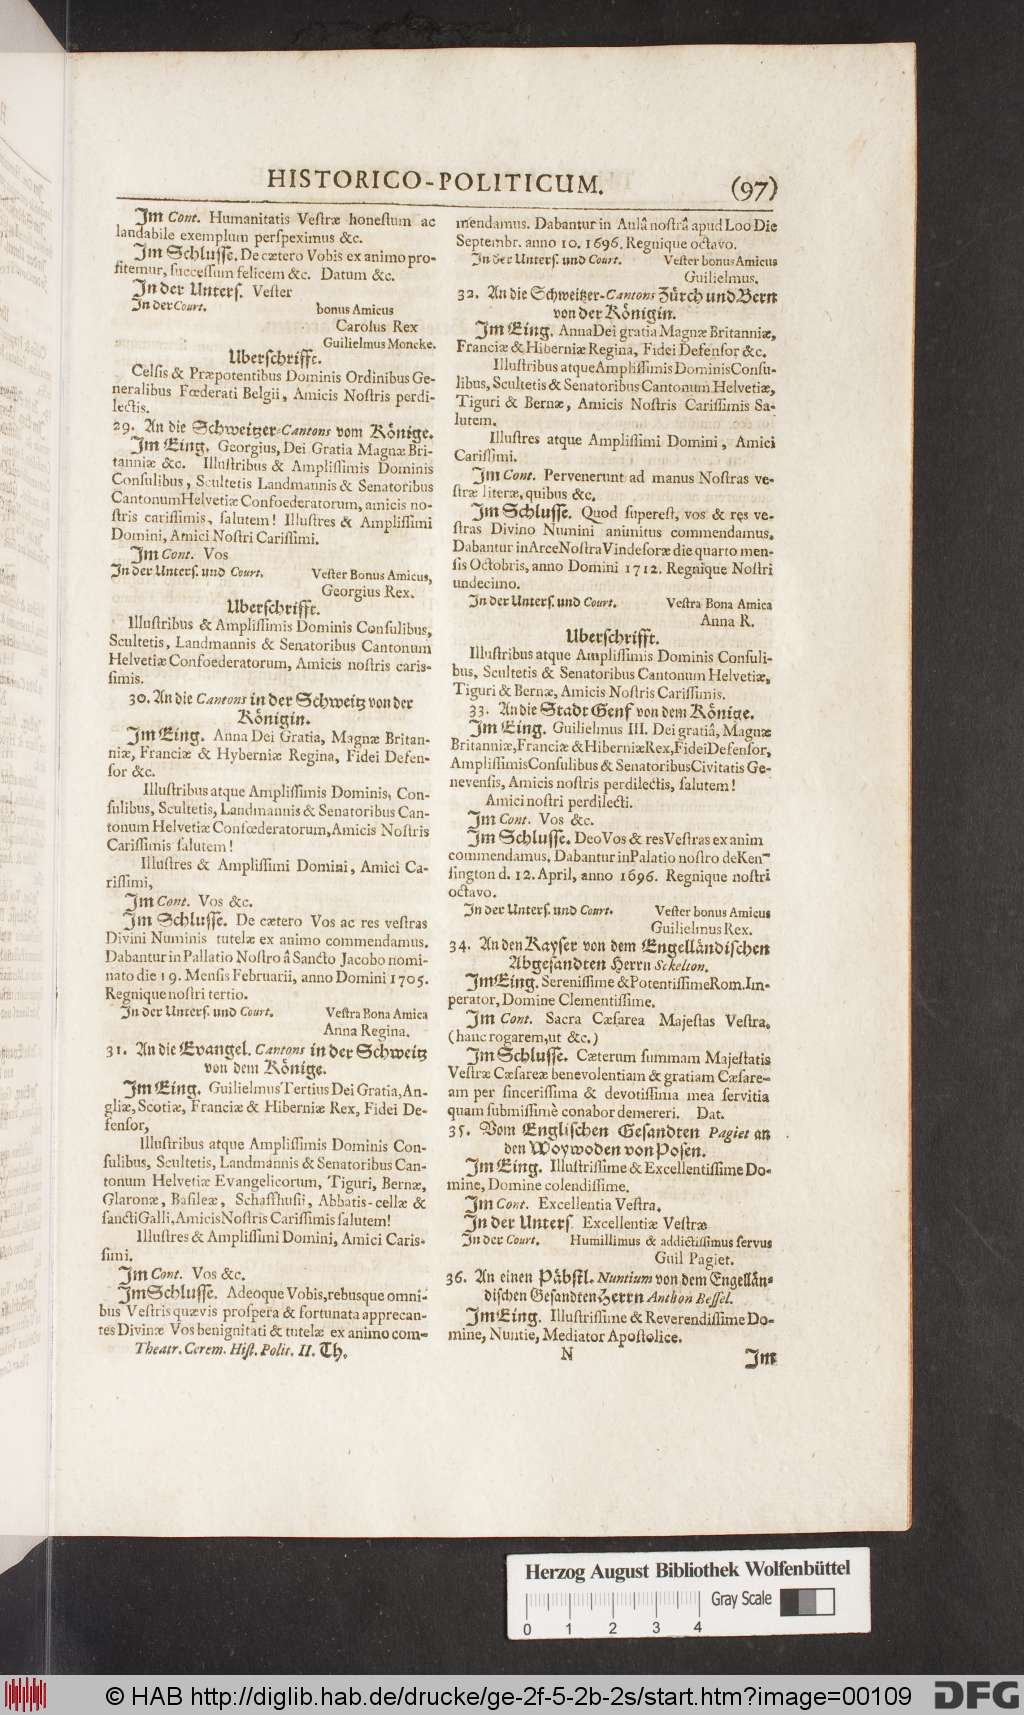 HISTORICO-POLITICUM. (97)
Im Cont. Humanitatis Vestræ honestum ac
landabile exemplum perspeximus &c.
Im Schlusse. De cætero Vobis ex animo pro-
fitemur, successum felicem &c. Datum &c.
In der Unters. Vester
In der Court. bonus Amicus
Carolus Rex
Guilielmus Moncke.
Uberschrifft.
Celsis & Præpotentibus Dominis Ordinibus Ge-
neralibus Fœderati Belgii, Amicis Nostris perdi-
lectis.
29. An die Schweitzer-Cantons vom Könige.
Im Eing. Georgius, Dei Gratia Magnæ Bri-
tanniæ &c. Illustribus & Amplissimis Dominis
Consulibus, Scultetis Landmannis & Senatoribus
Cantonum Helvetiæ Confoederatorum, amicis no-
stris carissimis, salutem! Illustres & Amplissimi
Domini, Amici Nostri Carissimi.
Im Cont. Vos
In der Unters. und Court. Vester Bonus Amicus,
Georgius Rex.
Uberschrifft.
Illustribus & Amplissimis Dominis Consulibus,
Scultetis, Landmannis & Senatoribus Cantonum
Helvetiæ Confoederatorum, Amicis nostris caris-
simis.
30. An die Cantons in der Schweitz von der
Königin.
Im Eing. Anna Dei Gratia, Magnæ Britan-
niæ, Franciæ & Hyberniæ Regina, Fidei Defen-
sor &c.
Illustribus atque Amplissimis Dominis, Con-
sulibus, Scultetis, Landmannis & Senatoribus Can-
tonum Helvetiæ Confœderatorum, Amicis Nostris
Carissimis salutem!
Illustres & Amplissimi Domini, Amici Ca-
rissimi,
Im Cont. Vos &c.
Im Schlusse. De cætero Vos ac res vestras
Divini Numinis tutelæ ex animo commendamus.
Dabantur in Pallatio Nostro â Sancto Jacobo nomi-
nato die 19. Mensis Februarii, anno Domini 1705.
Regnique nostri tertio.
In der Unters. und Court. Vestra Bona Amica
Anna Regina.
31. An die Evangel. Cantons in der Schweitz
von dem Könige.
Im Eing. Guilielmus Tertius Dei Gratia, An-
gliæ, Scotiæ, Franciæ & Hiberniæ Rex, Fidei De-
fensor,
Illustribus atque Amplissimis Dominis Con-
sulibus, Scultetis, Landmannis & Senatoribus Can-
tonum Helvetiæ Evangelicorum, Tiguri, Bernæ,
Glaronæ, Basileæ, Schaffhusii, Abbatis-cellæ &
sancti Galli, Amicis Nostris Carissimis salutem!
Illustres & Amplissimi Domini, Amici Caris-
simi.
Im Cont. Vos &c.
Im Schlusse. Adeoque Vobis, rebusque omni-
bus Vestris quævis prospera & fortunata apprecan-
tes Divinæ Vos benignitati & tutelæ ex animo com-
Theatr. Cerem. Hist. Polit. II. Th.
mendamus. Dabantur in Aulâ nostrâ apud Loo Die
Septembr. anno 10. 1696. Regnique octavo.
In der Unters. und Court. Vester bonus Amicus
Guilielmus.
32. An die Schweitzer-Cantons Zürch und Bern
von der Königin.
Im Eing. Anna Dei gratia Magnæ Britanniæ,
Franciæ & Hiberniæ Regina, Fidei Defensor &c.
Illustribus atque Amplissimis Dominis Consu-
libus, Scultetis & Senatoribus Cantonum Helvetiæ,
Tiguri & Bernæ, Amicis Nostris Carissimis Sa-
lutem.
Illustres atque Amplissimi Domini, Amici
Carissimi.
Im Cont. Pervenerunt ad manus Nostras ve-
stræ literæ, quibus &c.
Im Schlusse. Quod superest, vos & res ve-
stras Divino Numini animitus commendamus.
Dabantur in Arce Nostra Vindesoræ die quarto men-
sis Octobris, anno Domini 1712. Regnique Nostri
undecimo.
In der Unters. und Court. Vestra Bona Amica
Anna R.
Uberschrifft.
Illustribus atque Amplissimis Dominis Consuli-
bus, Scultetis & Senatoribus Cantonum Helvetiæ,
Tiguri & Bernæ, Amicis Nostris Carissimis.
33. An die Stadt Genf von dem Könige.
Im Eing. Guilielmus III. Dei gratiâ, Magnæ
Britanniæ, Franciæ & Hiberniæ Rex, Fidei Defensor,
Amplissimis Consulibus & Senatoribus Civitatis Ge-
nevensis, Amicis nostris perdilectis, salutem!
Amici nostri perdilecti.
Im Cont. Vos &c.
Im Schlusse. Deo Vos & res Vestras ex anim
commendamus. Dabantur in Palatio nostro de Ken-
sington d. 12. April, anno 1696. Regnique nostri
octavo.
In der Unters. und Court. Vester bonus Amicus
Guilielmus Rex.
34. An den Kayser von dem Engelländischen
Abgesandten Herrn Sckelton.
Im Eing. Serenissime & Potentissime Rom. Im-
perator, Domine Clementissime.
Im Cont. Sacra Cæsarea Majestas Vestra.
(hanc rogarem, ut &c.)
Im Schlusse. Cæterum summam Majestatis
Vestræ Cæsareæ benevolentiam & gratiam Cæsare-
am per sincerissima & devotissima mea servitia
quam submissimè conabor demereri. Dat.
35. Vom Englischen Gesandten Pagiet an
den Woywoden von Posen.
Im Eing. Illustrissime & Excellentissime Do-
mine, Domine colendissime.
Im Cont. Excellentia Vestra.
In der Unters. Excellentiæ Vestræ
In der Court. Humillimus & addictissimus servus
Guil Pagiet.
36. An einen Päbstl. Nuntium von dem Engellän-
dischen Gesandten Herrn Anthon Bessel.
Im Eing. Illustrissime & Reverendissime Do-
mine, Nuntie, Mediator Apostolice.
N Im
Herzog August Bibliothek Wolfenbüttel
0 1 2 3 4 Gray Scale
© HAB http://diglib.hab.de/drucke/ge-2f-5-2b-2s/start.htm?image=00109 DFG